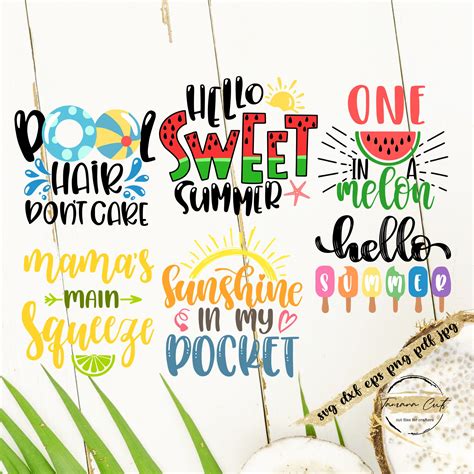 POOL
HAIR
DON'T CARE
HELLO
SWEET
SUMMER
ONE
IN A
melon
mama's
MAIN
Squeeze
Sunshine
IN MY
POCKET
hello
SUMMER
svg dxf eps png pdf jpg
Tamara Cuts